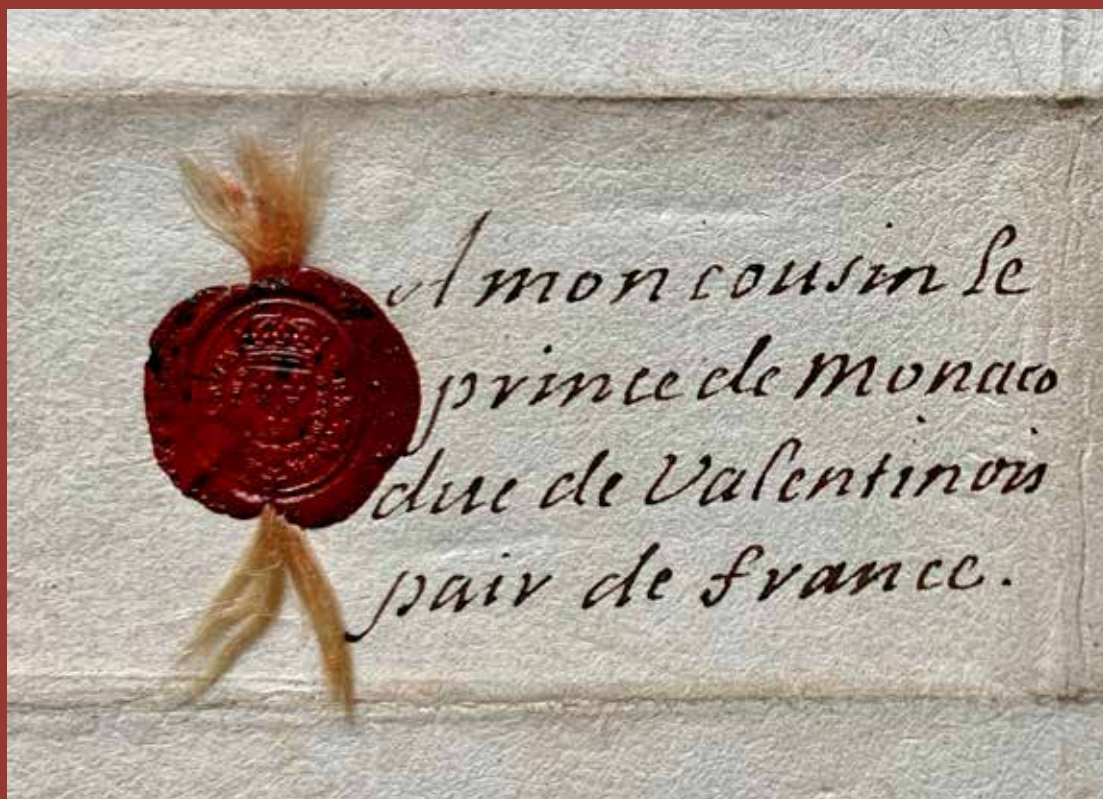 A mon cousin le
prince de Monaco
duc de Valentinois
pair de france.